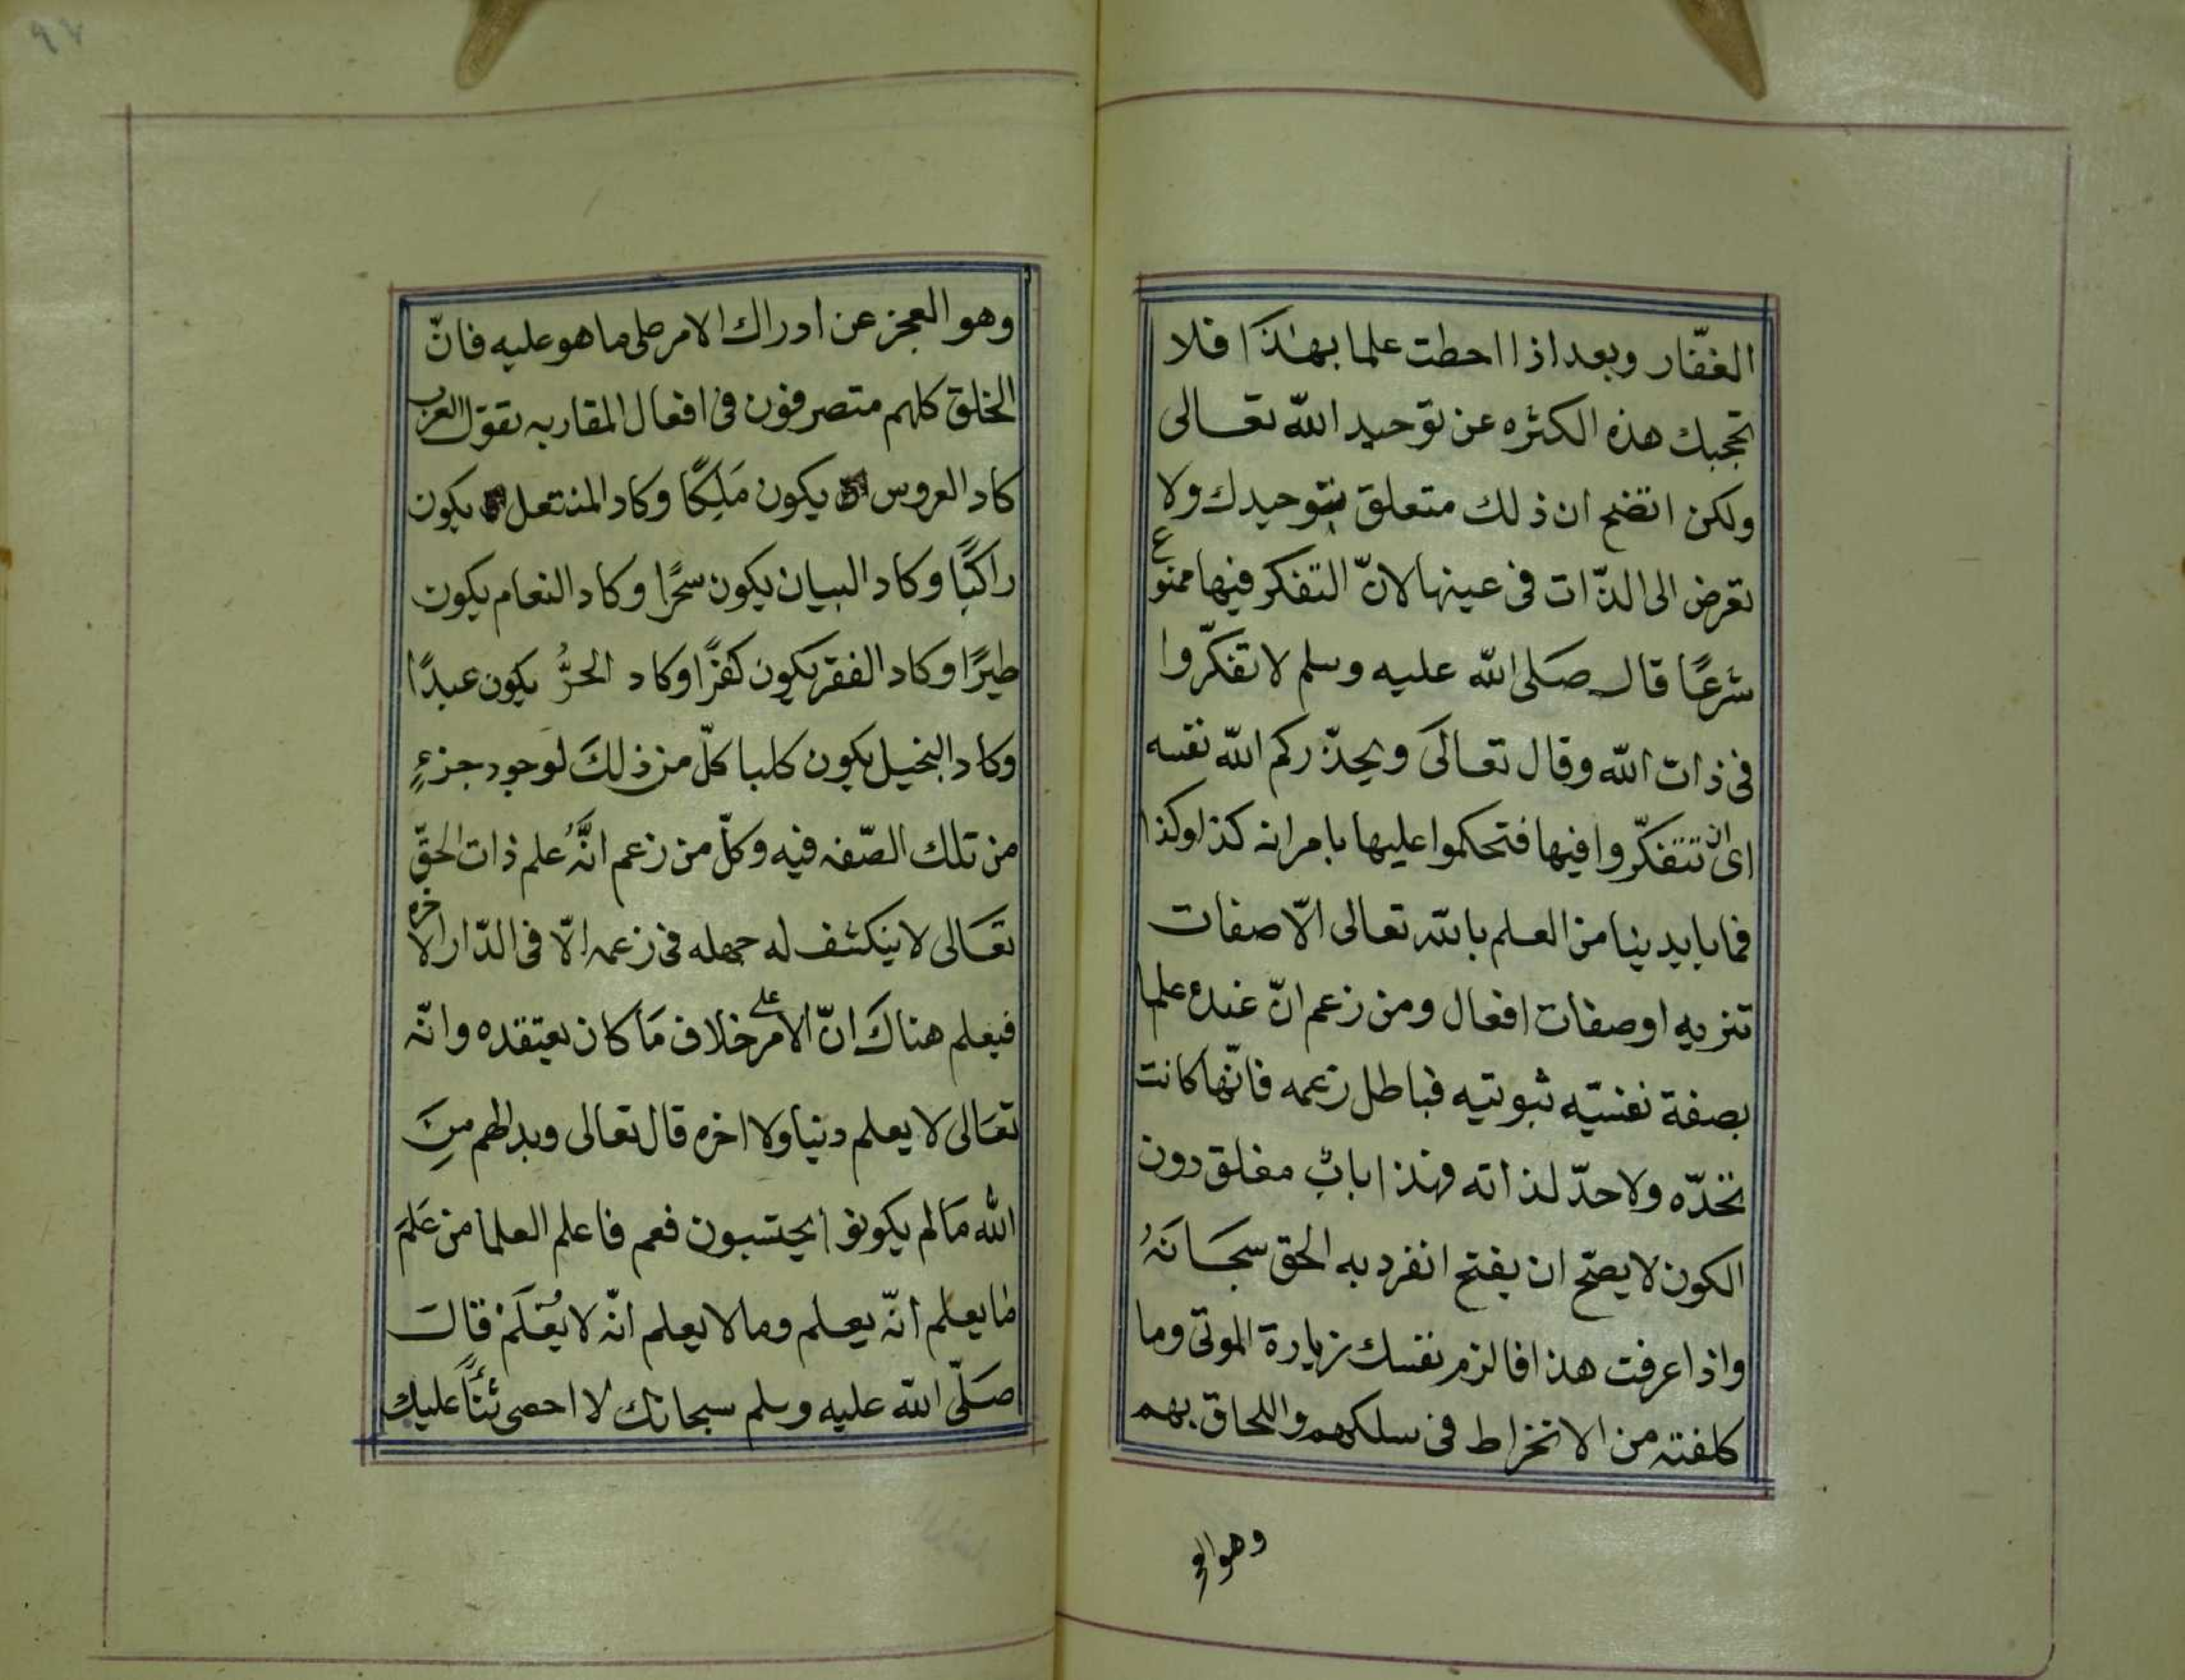 الغفّار وبعد اذا احطت علما بهٰذَا فلا
تحجبك هذه الكثره عن توحيد الله تعالى
ولكن اتضح ان ذلك متعلق بتوحيدك ولا
تعرض الى الذّات فى عينها لانّ التفكر فيها ممنوع
شرعًا قال صَلى الله عليه وسلم لا تفكّروا
فى ذات الله وقال تعالَى ويحذّركم الله نفسه
اى ان تتفكّروا فيها فتحكموا عليها بامر انه كذا وكذا
فما بايدينا من العلم بالله تعالى الّا صفات
تنزيه او صفات افعال ومن زعم انّ عنده علما
بصفة نفسيّه ثبوتيه فباطل زعمه فانّها كانت
تحدّه ولا حدّ لذاته فهذا بابٌ مغلق دون
الكون لا يصحّ ان يفتح انفرد به الحق سبحَانَهُ
واذا عرفت هذا فالزم نفسك زيارة الموتى وما
كلفته من الانخراط فى سلكهم واللحاق بهم
وهو الع
٩٧
وهو العجز عن ادراك الامر على ما هو عليه فانّ
الخلق كلهم متصرفون فى افعال المقاربه تقول العرب
كاد العروس يكون مَلِكًا وكاد المنتعل يكون
راكبًا وكاد البيان يكون سحرًا وكاد النعام يكون
طيرًا وكاد الفقر يكون كفرًا وكاد الحرُّ يكون عبدًا
وكاد البخيل يكون كلبا كلّ من ذلكَ لوجود جزءٍ
من تلك الصّفه فيه وكلّ من زعم انَّهُ علم ذات الحقّ
تعَالى لا ينكشف له جهله فى زعمه الّا فى الدّار الاخره
فيعلم هناكَ انّ الامر على خلاف مَا كان يعتقده وانّه
تعَالى لا يعلم دنيا ولا اخره قال تعالى وبدا لهم مِنَ
الله مَا لم يكونوا يحتسبون فعم فاعلم العلما من عَلمَ
ما يعلم انّه يعلم وما لا يعلم انّه لا يُعْلَمْ قال
صَلّى الله عليه وسلم سبحانك لا احصى ثنًّا عليك